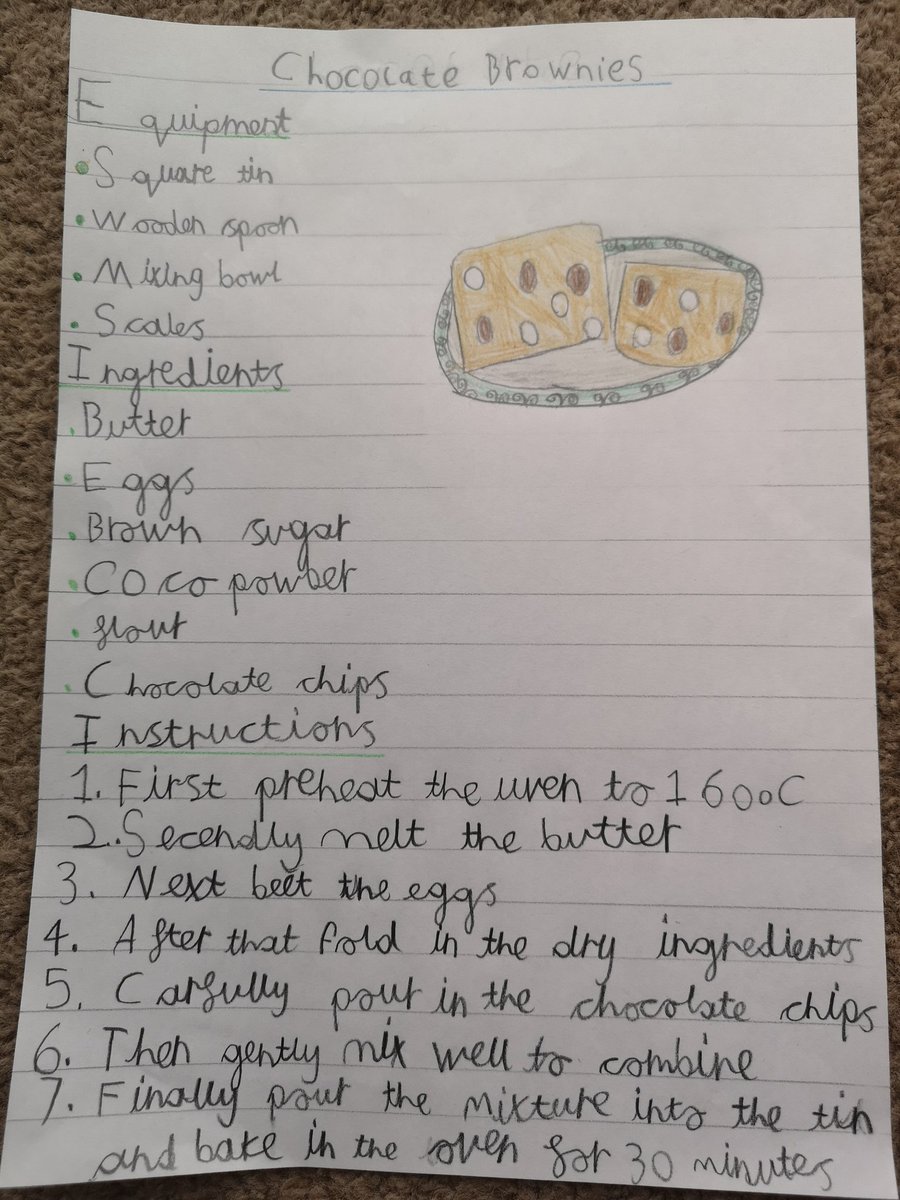 Chocolate Brownies
Equipment
• Square tin
• Wooden spoon
• Mixing bowl
• Scales
Ingredients
• Butter
• Eggs
• Brown sugar
• Coco powber
• flour
• Chocolate chips
Instructions
1. First preheat the uven to 160oC
2. Secendly melt the butter
3. Next beet the eggs
4. After that fold in the dry ingredients
5. Carfully pour in the chocolate chips
6. Then gently mix well to combine
7. Finally pour the mixture into the tin
and bake in the oven for 30 minutes